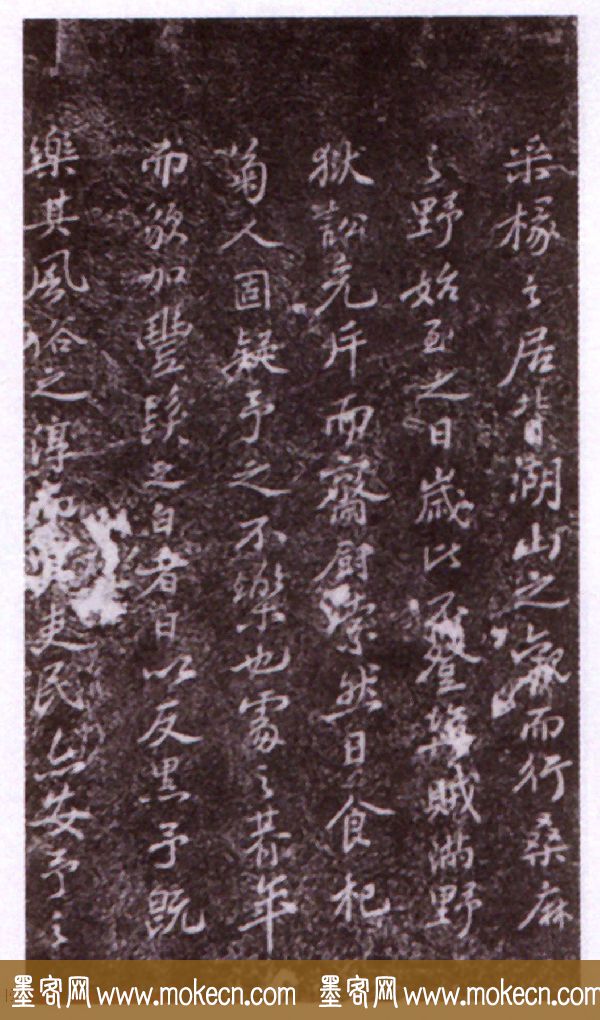 采椽之居背湖山之觀而行桑麻
之野始至之日歲比不登盜賊滿野
獄訟充斥而齋厨索然日食杞
菊人固疑予之不樂也處之朞年
而貌加豐髮之白者日以反黑予既
樂其風俗之淳而其吏民亦安予之
墨客网 www.mokecn.com 墨客网 www.mokecn.com